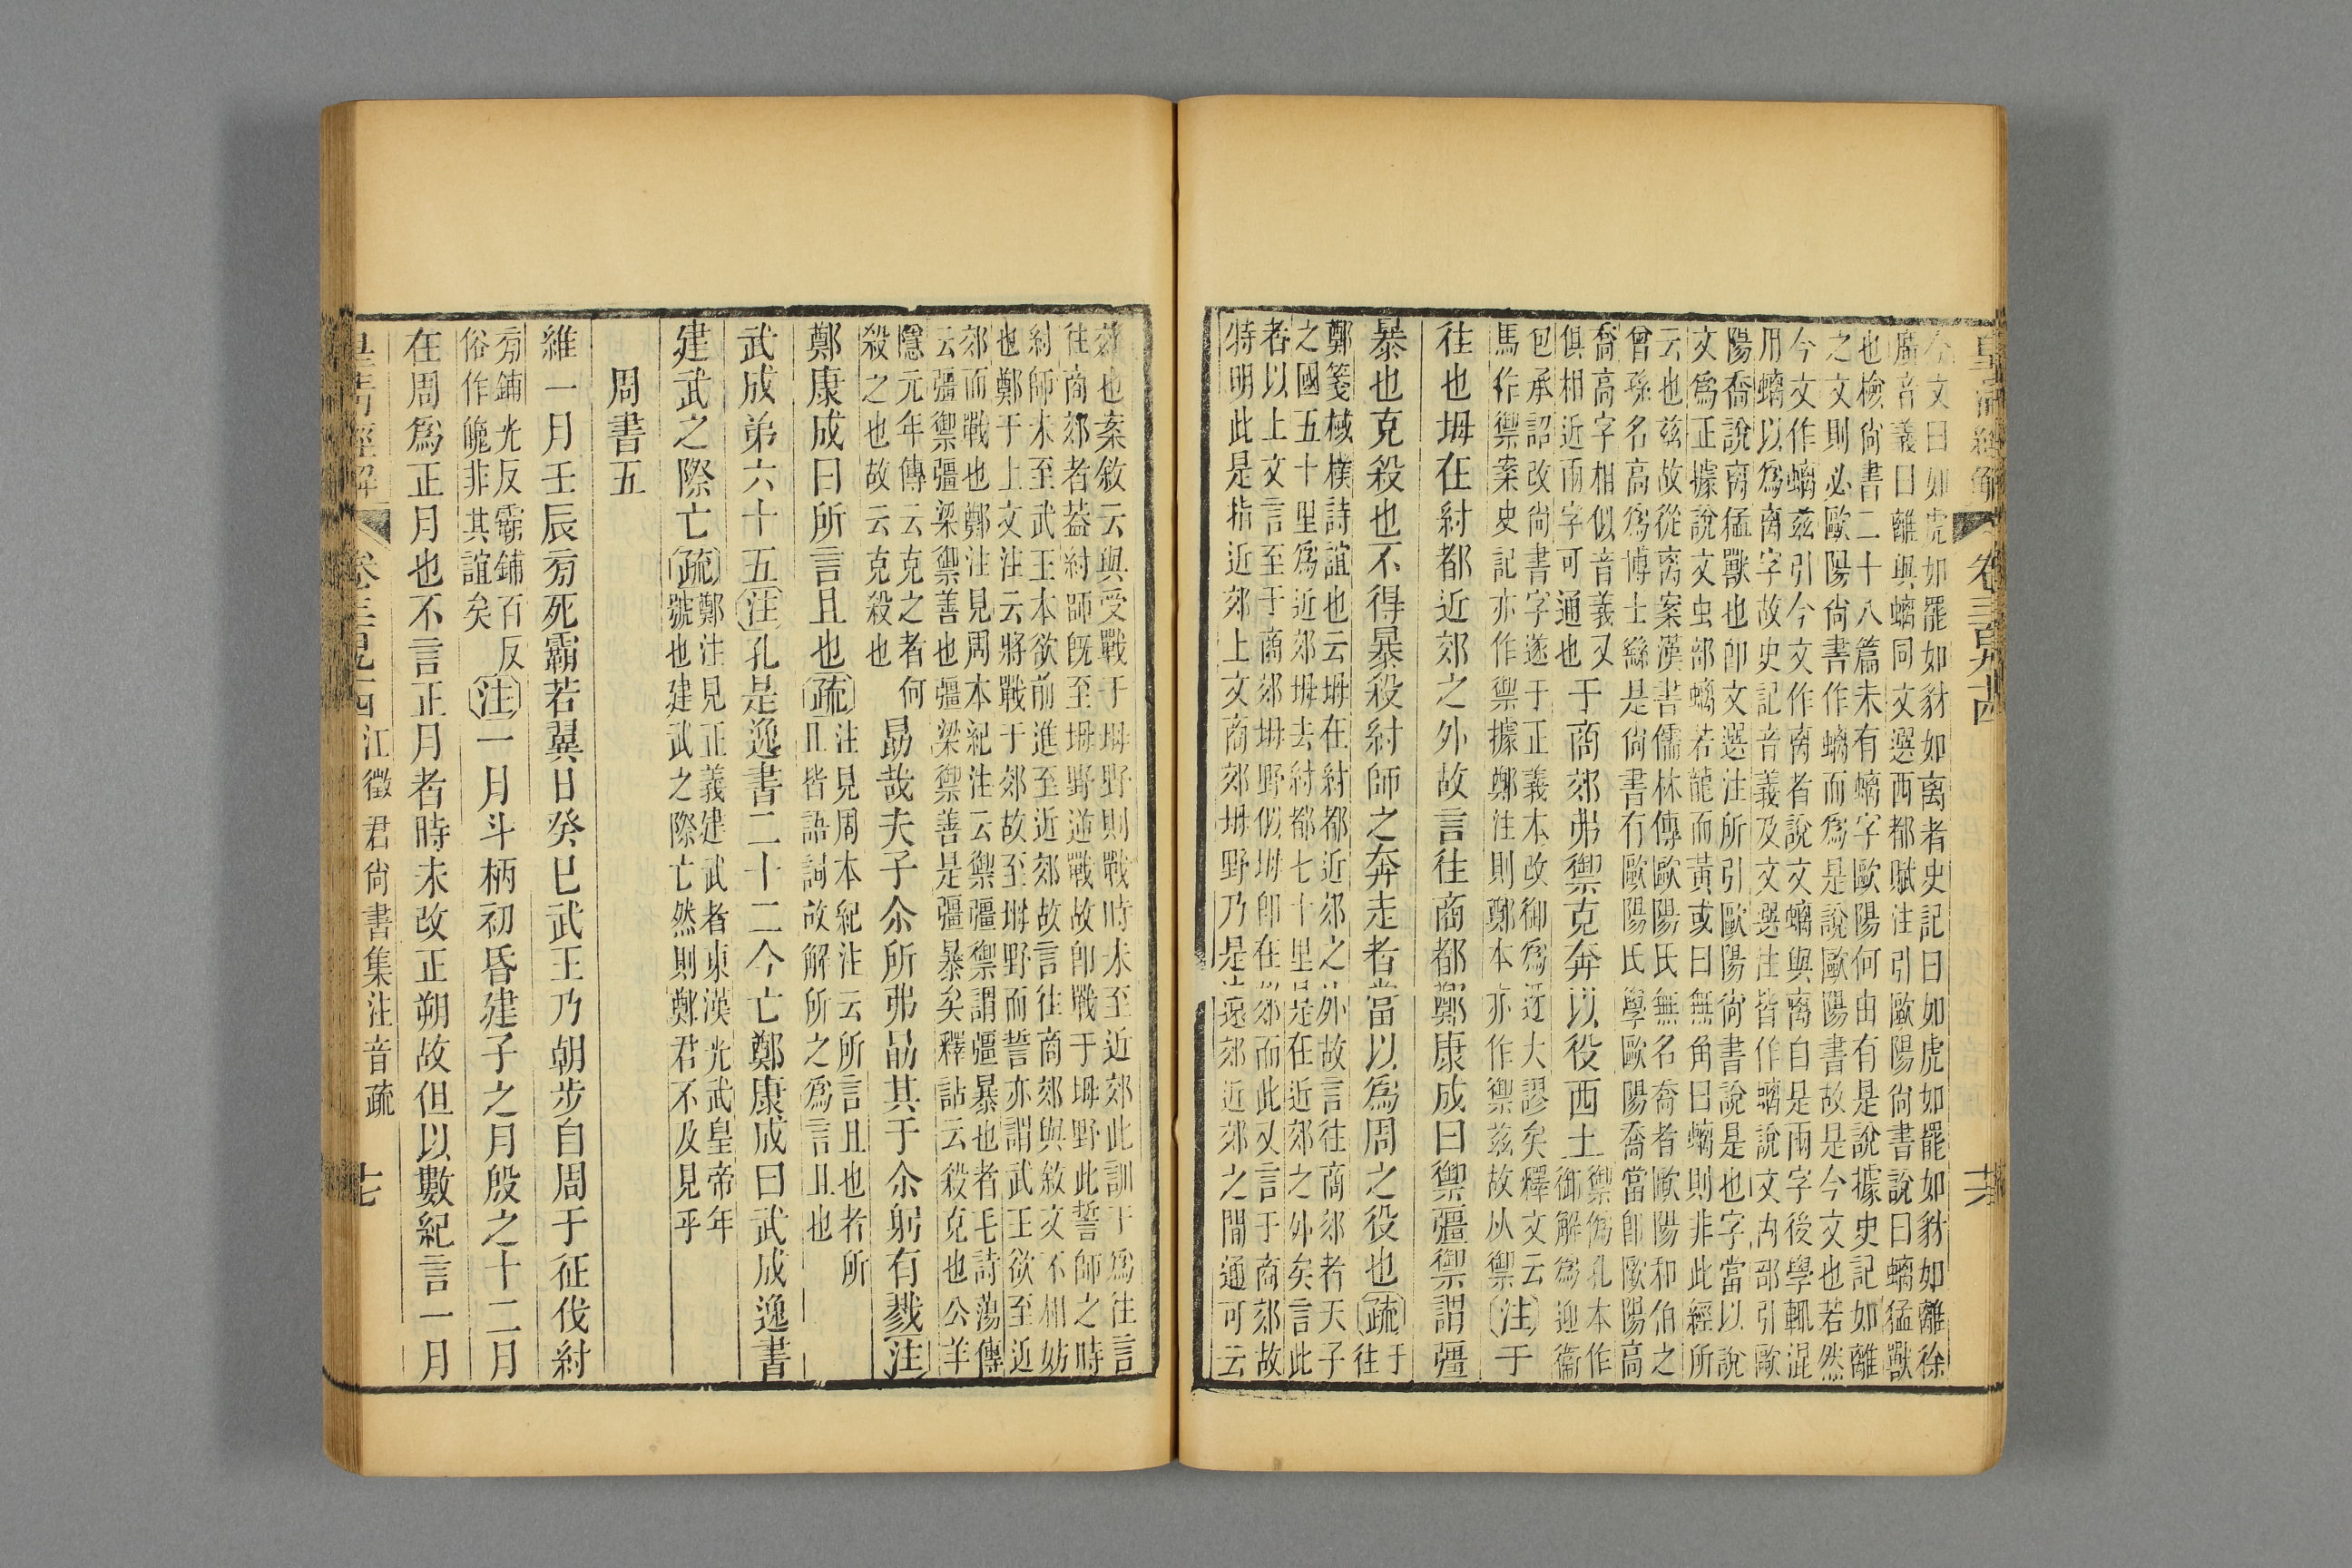 皇清經解
卷三百九十四
今文曰如虎如羆如豺如离者史記曰如虎如羆如豺如離徐
廣音義曰離與螭同文選西都賦注引歐陽尙書說曰螭猛獸
也檢尙書二十八篇未有螭字歐陽何由有是說據史記如離
之文則必歐陽尙書作螭而爲是說歐陽書故是今文也若然
今文作螭茲引今文作离者說文螭與离自是兩字後學輒混
用螭以爲离字故史記音義及文選注皆作螭說文禸部引歐
陽喬說离猛獸也卽文選注所引歐陽尙書說是也字當以說
文爲正據說文虫部螭若龍而黃或曰無角曰螭則非此經所
云也茲故從离案漢書儒林傳歐陽氏無名喬者歐陽和伯之
曾孫名高爲博士繇是尙書有歐陽氏學歐陽喬當卽歐陽高
喬高字相似音義又
俱相近兩字可通也
于商郊弗禦克奔以役西土
禦僞孔本作
御解爲迎衞
包承詔改尙書字遂于正義本改御爲迓大謬矣釋文云
馬作禦案史記亦作禦據鄭注則鄭本亦作禦茲故从禦
注于
往也坶在紂都近郊之外故言往商都鄭康成曰禦彊禦謂彊
暴也克殺也不得暴殺紂師之奔走者當以爲周之役也疏
于
往
鄭箋棫樸詩誼也云坶在紂都近郊之外故言往商郊者天子
之國五十里爲近郊坶去紂都七十里是在近郊之外矣言此
者以上文言至于商郊坶野似坶卽在郊而此又言于商郊故
特明此是指近郊上文商郊坶野乃是遠郊近郊之閒通可云
郊也案敘云與受戰于坶野則戰時未至近郊此訓于爲往言
往商郊者葢紂師旣至坶野逆戰故卽戰于坶野此誓師之時
紂師未至武王本欲前進至近郊故言往商郊與敘文不相妨
也鄭于上文注云將戰于郊故至坶野而誓亦謂武王欲至近
郊而戰也鄭注見周本紀注云禦彊禦謂彊暴也者毛詩蕩傳
云彊禦彊梁禦善也彊梁禦善是彊暴矣釋詁云殺克也公羊
隱元年傳云克之者何
殺之也故云克殺也
勗哉夫子尒所弗勗其于尒躬有戮注
鄭康成曰所言且也疏
注見周本紀注云所言且也者所
且皆語詞故解所之爲言且也
武成弟六十五注孔是逸書二十二今亡鄭康成曰武成逸書
建武之際亡疏
鄭注見正義建武者東漢光武皇帝年
號也建武之際亡然則鄭君不及見乎
周書五
維一月壬辰㫄死霸若翼日癸巳武王乃朝步自周于征伐紂
㫄鋪光反霸鋪百反
俗作魄非其誼矣
注一月斗柄初昏建子之月殷之十二月
在周爲正月也不言正月者時未改正朔故但以數紀言一月
皇清經解
卷三百九十四
江徵君尙書集注音疏
七